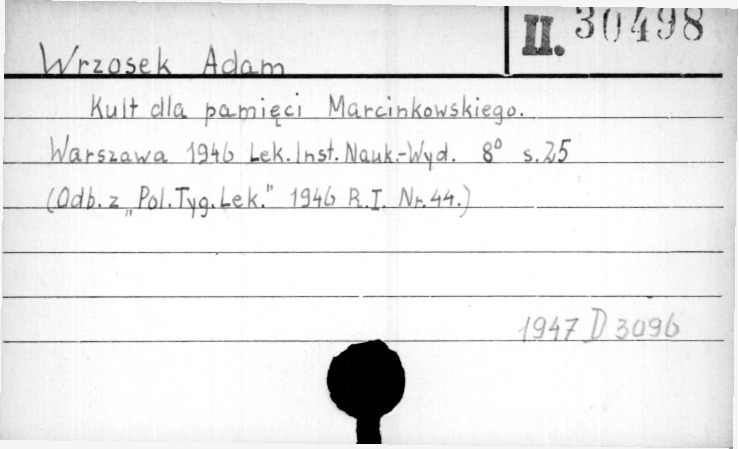 II. 30498
Wrzosek Adam
Kult dla pamięci Marcinkowskiego.
Warszawa 1946 Lek. Inst. Nauk.-Wyd. 8° s. 25
(Odb. z „Pol. Tyg. Lek." 1946 R. I. Nr. 44.)
1947 D 3096